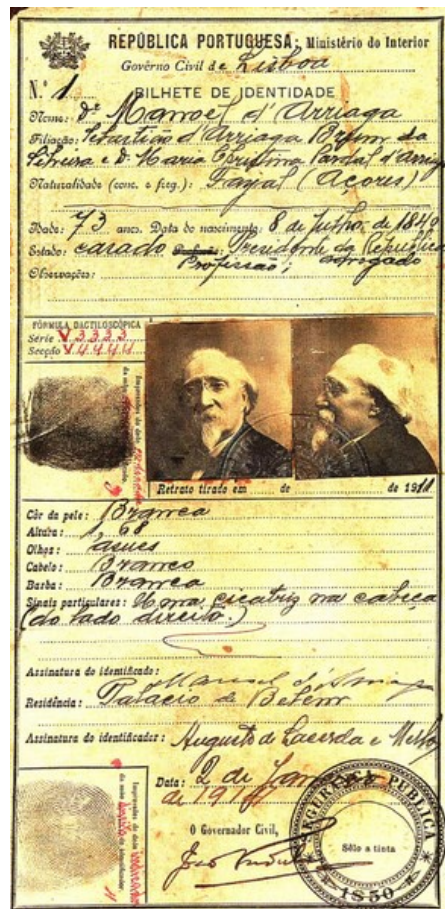 REPÚBLICA PORTUGUESA; Ministério do Interior
Govêrno Civil de Lisboa
N.º 1
BILHETE DE IDENTIDADE
Nome: Dr Manoel d'Arriaga
Filiação: Sebastião d'Arriaga Brum da
Silveira e D. Maria Cristina Pardal d'Arriaga
Naturalidade (conc. e freg.): Fayal (Açores)
Idade: 73 anos. Data do nascimento: 8 de Julho de 1840
Estado: casado Presidente da República
Profissão; advogado
Observações:
FÓRMULA DACTILOSCÓPICA
Série V 3333
Secção V 4444
Retrato tirado em de de 191
Côr da pele: Branca
Altura: 1,68
Olhos: azues
Cabelo: Branco
Barba: Branca
Sinais particulares: Uma cicatriz na cabeça
(do lado direito.)
Assinatura do identificado: Manuel d'Arriaga
Residência: Palacio de Belem
Assinatura do identificador: Augusto de Lacerda e Mello
Data: 2 de Jan
de 191
O Governador Civil,
PUBLICA
Sêlo a tinta
1850